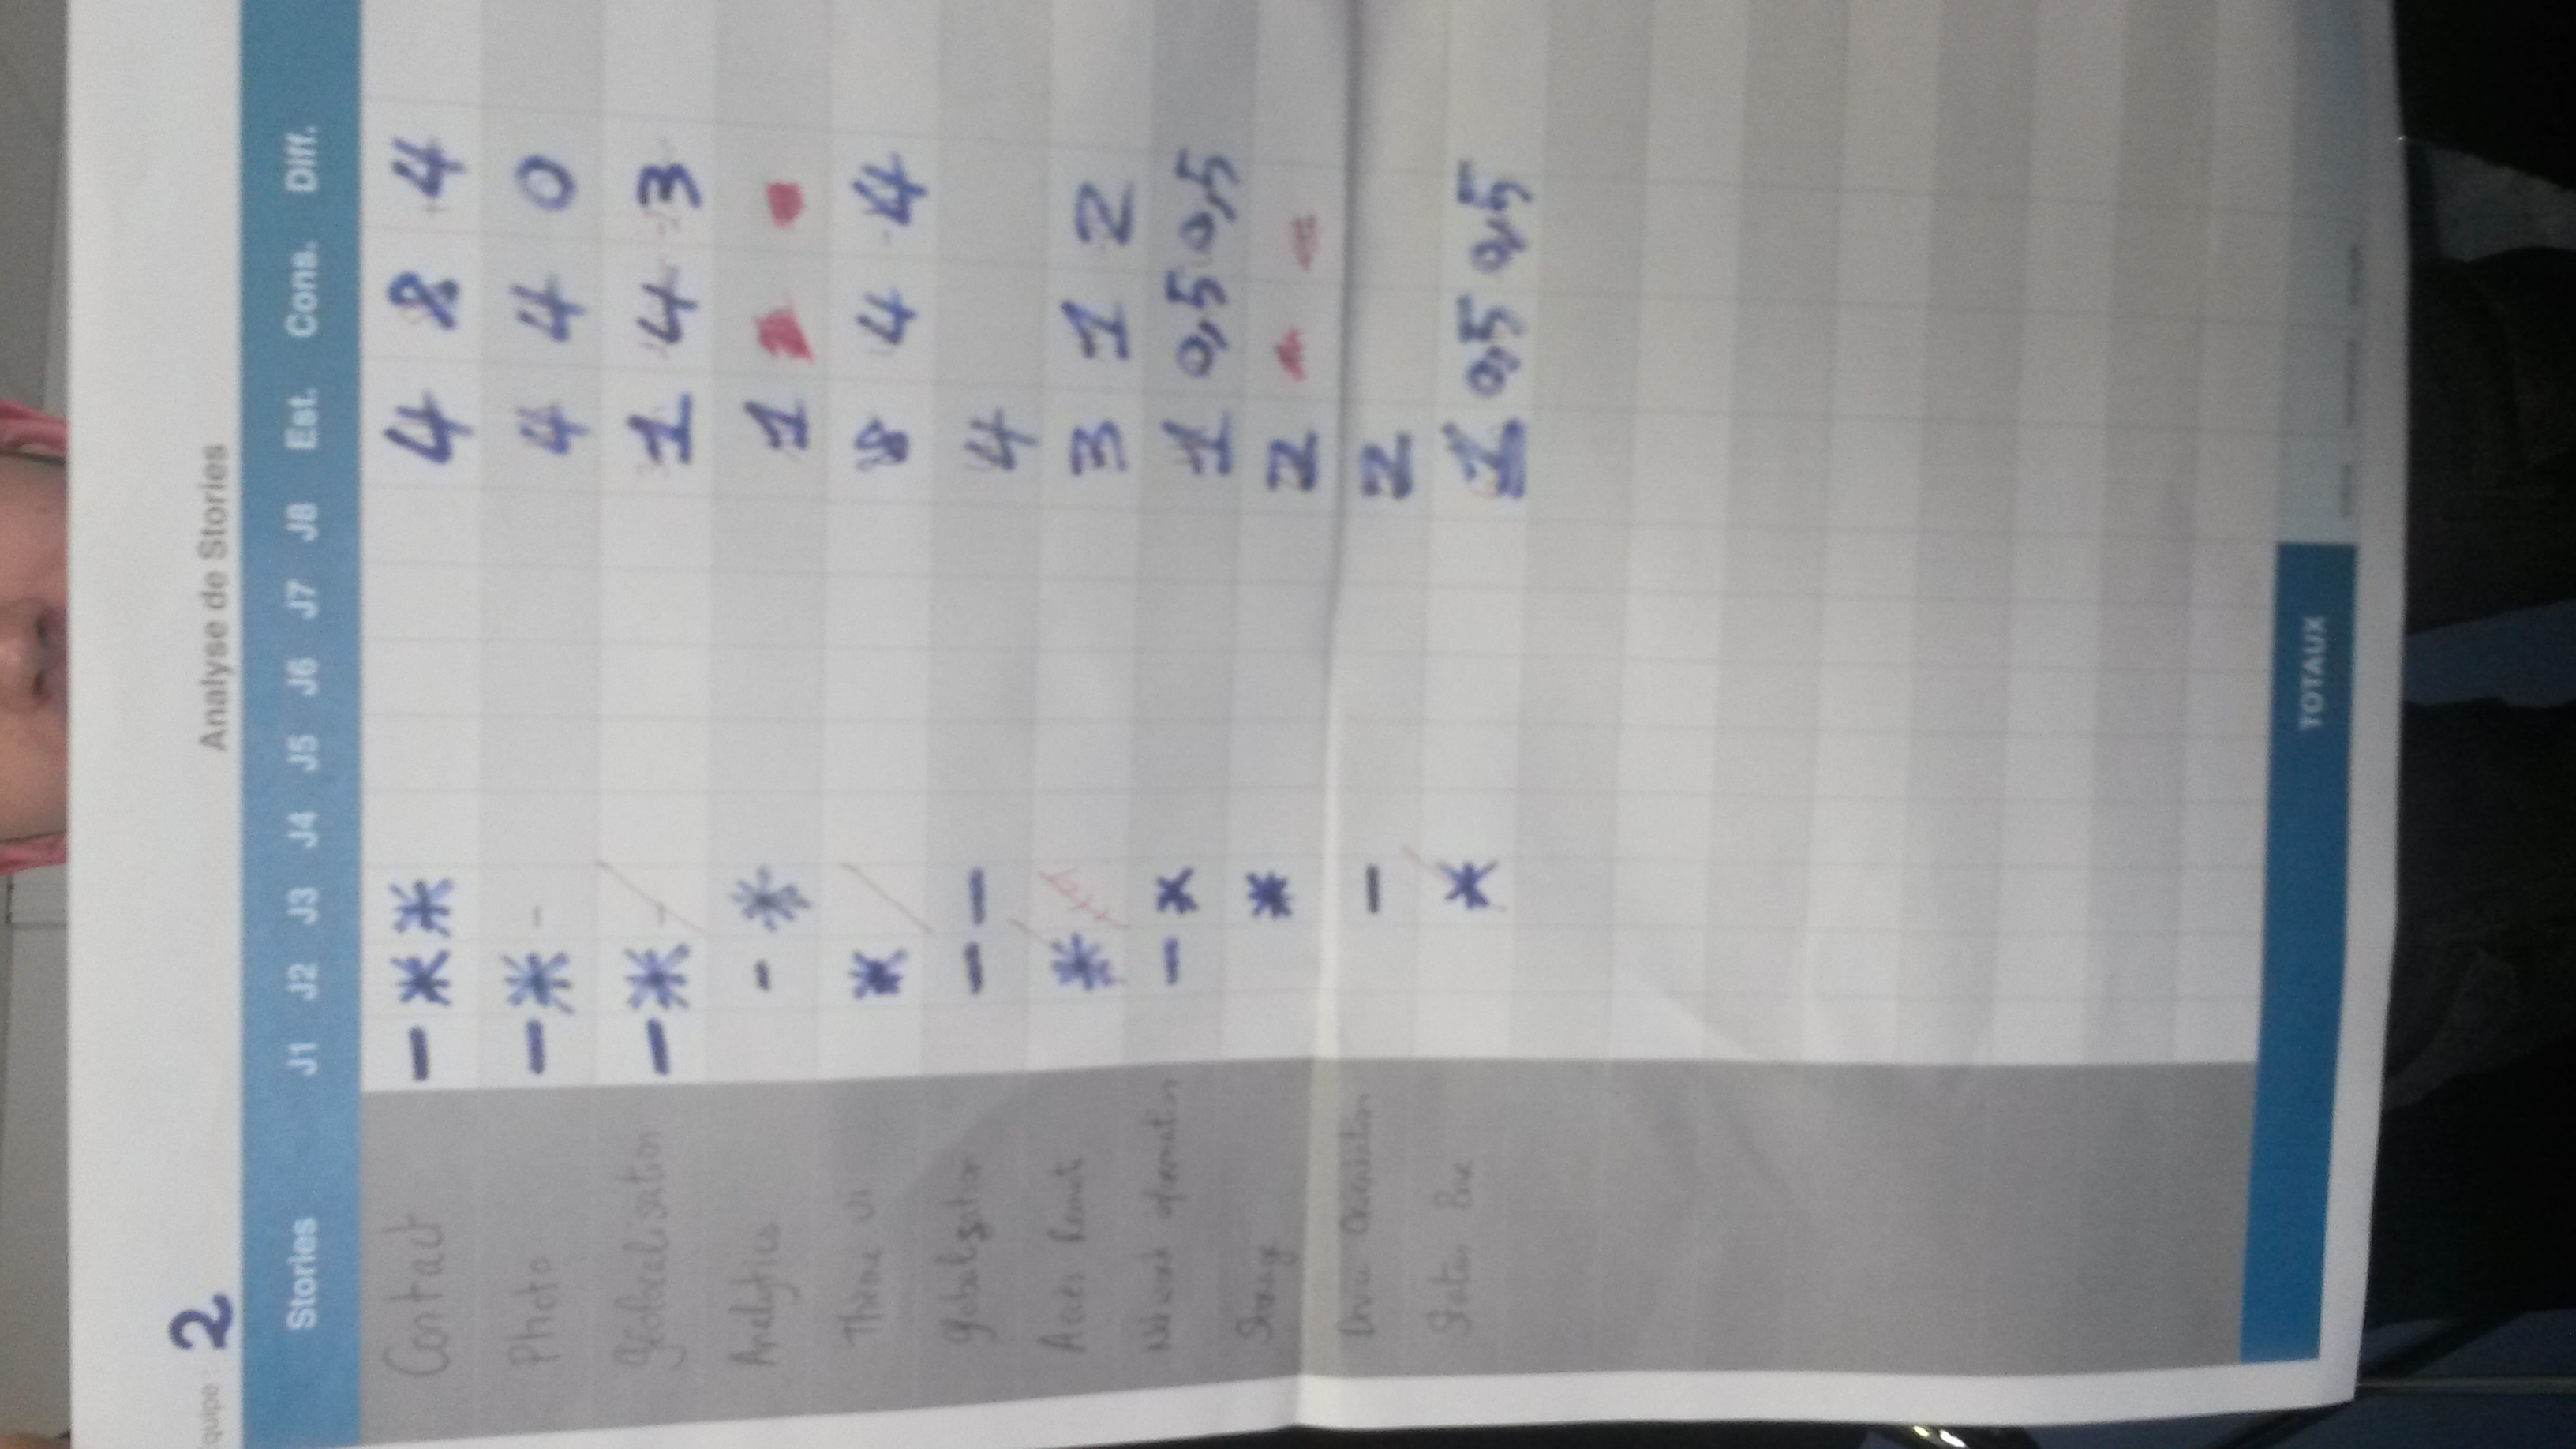 Equipe : 2
Analyse de Stories
Stories J1 J2 J3 J4 J5 J6 J7 J8 Est. Cons. Diff.
Contact — * * 4 8 4
Photo — * - 4 4 0
Géolocalisation — * - 1 4 3
Analytics - * 1
Thème UI * 8 4 -4
Globalisation — — 4
Accès Remote * 3 1 2
Network information — x 1 0,5 0,5
Storage * 2
Device Orientation — 2
Status Bar x 1 0,5 0,5
TOTAUX